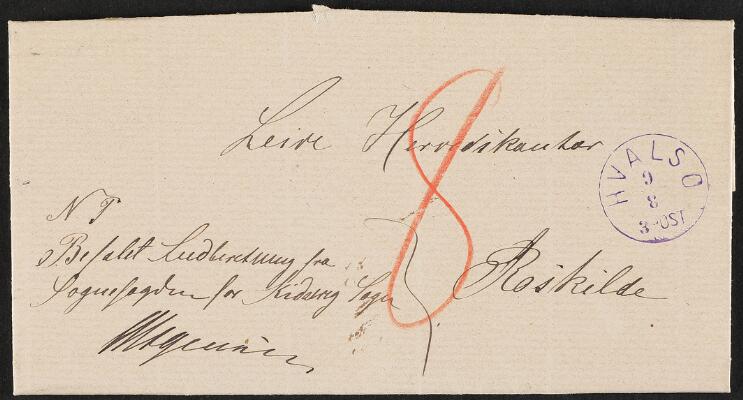 Leire Herredskontor
8
HVALSO
9
8
3 POST
N P
Befalet Indberetning fra
Roskilde
Sognefogden for Kisserup Sogn